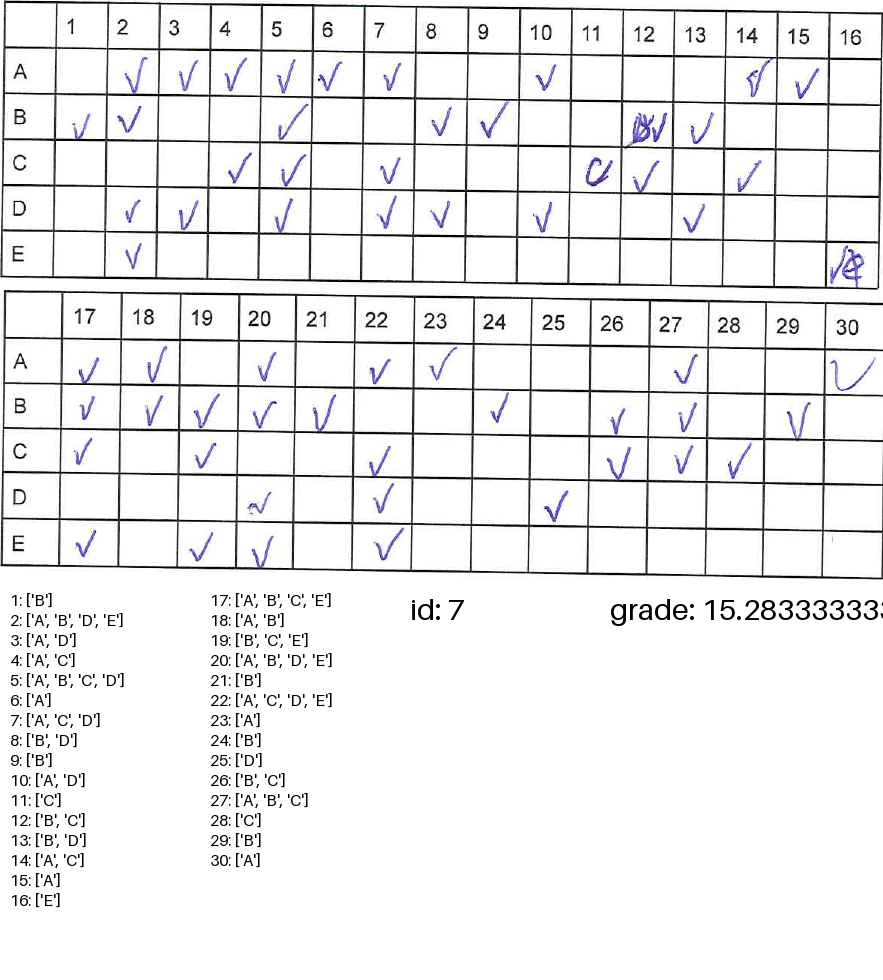 1 2 3 4 5 6 7 8 9 10 11 12 13 14 15 16
A ✓ ✓ ✓ ✓ ✓ ✓ ✓ ✓ ✓
B ✓ ✓ ✓ ✓ ✓ ✓ ✓
C ✓ ✓ ✓ C ✓ ✓
D ✓ ✓ ✓ ✓ ✓ ✓ ✓
E ✓ ✓
17 18 19 20 21 22 23 24 25 26 27 28 29 30
A ✓ ✓ ✓ ✓ ✓ ✓ ✓
B ✓ ✓ ✓ ✓ ✓ ✓ ✓ ✓ ✓
C ✓ ✓ ✓ ✓ ✓ ✓
D ✓ ✓ ✓
E ✓ ✓ ✓ ✓
1: ['B']
2: ['A', 'B', 'D', 'E']
3: ['A', 'D']
4: ['A', 'C']
5: ['A', 'B', 'C', 'D']
6: ['A']
7: ['A', 'C', 'D']
8: ['B', 'D']
9: ['B']
10: ['A', 'D']
11: ['C']
12: ['B', 'C']
13: ['B', 'D']
14: ['A', 'C']
15: ['A']
16: ['E']
17: ['A', 'B', 'C', 'E']
18: ['A', 'B']
19: ['B', 'C', 'E']
20: ['A', 'B', 'D', 'E']
21: ['B']
22: ['A', 'C', 'D', 'E']
23: ['A']
24: ['B']
25: ['D']
26: ['B', 'C']
27: ['A', 'B', 'C']
28: ['C']
29: ['B']
30: ['A']
id: 7
grade: 15.283333333